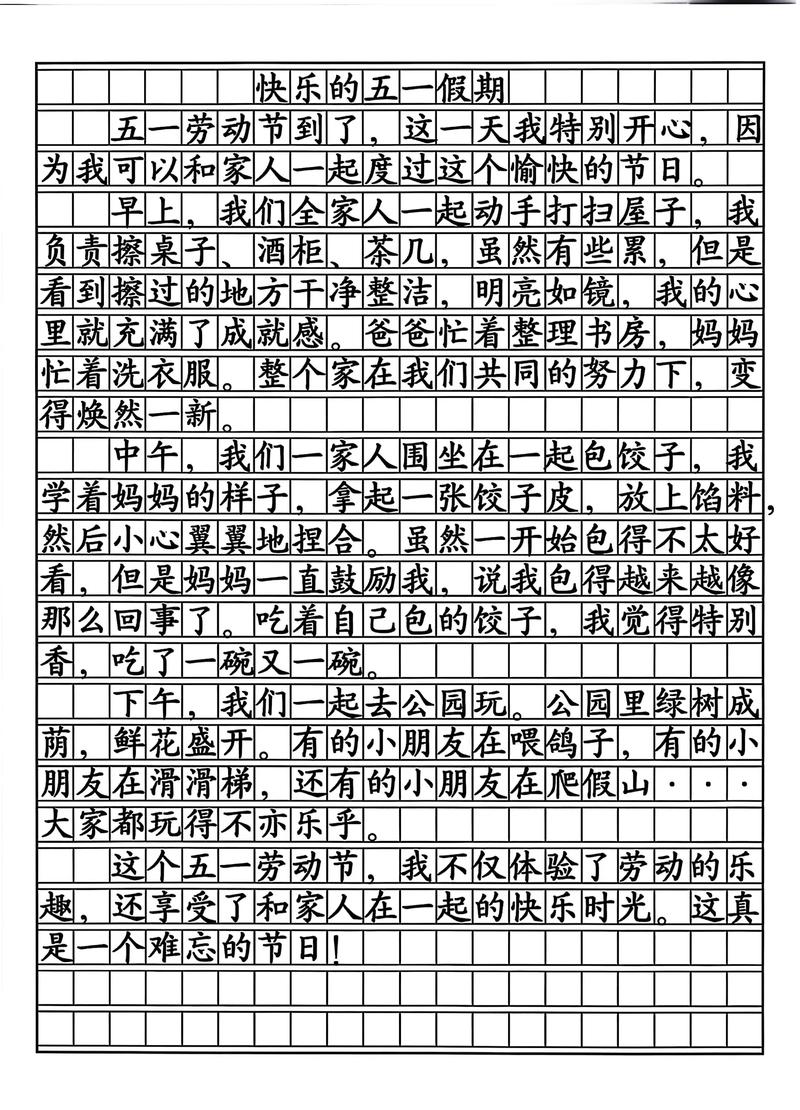 快乐的五一假期
五一劳动节到了，这一天我特别开心，因
为我可以和家人一起度过这个愉快的节日。
早上，我们全家人一起动手打扫屋子，我
负责擦桌子、酒柜、茶几，虽然有些累，但是
看到擦过的地方干净整洁，明亮如镜，我的心
里就充满了成就感。爸爸忙着整理书房，妈妈
忙着洗衣服。整个家在我们共同的努力下，变
得焕然一新。
中午，我们一家人围坐在一起包饺子，我
学着妈妈的样子，拿起一张饺子皮，放上馅料，
然后小心翼翼地捏合。虽然一开始包得不太好
看，但是妈妈一直鼓励我，说我包得越来越像
那么回事了。吃着自己包的饺子，我觉得特别
香，吃了一碗又一碗。
下午，我们一起去公园玩。公园里绿树成
荫，鲜花盛开。有的小朋友在喂鸽子，有的小
朋友在滑滑梯，还有的小朋友在爬假山···
大家都玩得不亦乐乎。
这个五一劳动节，我不仅体验了劳动的乐
趣，还享受了和家人在一起的快乐时光。这真
是一个难忘的节日！